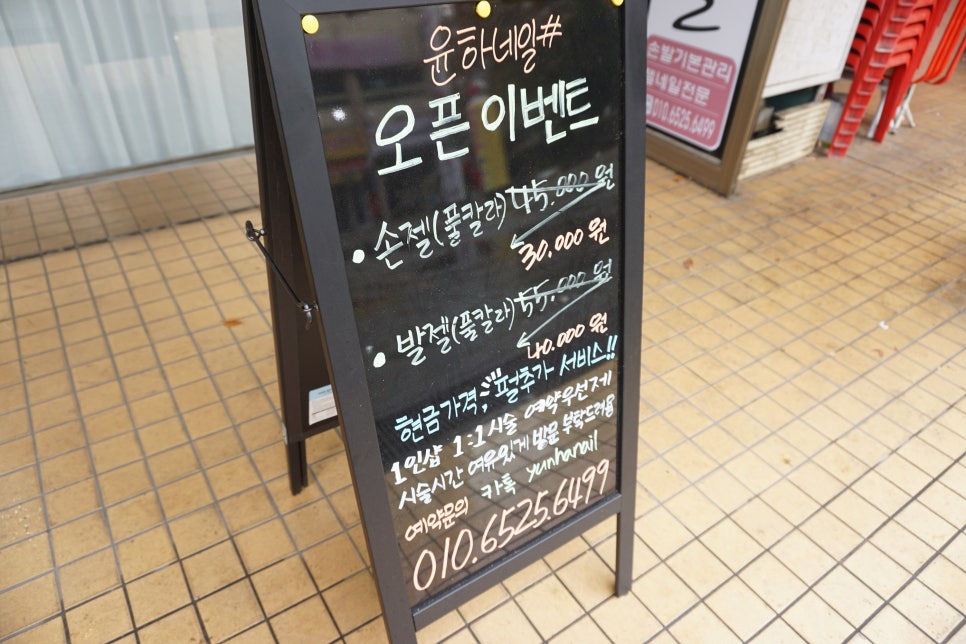 윤하네일#
오픈 이벤트
• 손젤(풀칼라) 45.000 원
30.000 원
• 발젤(풀칼라) 55.000 원
40.000 원
현금가격, 펄추가 서비스!!
1인샵 1:1시술 예약우선제
시술시간 여유있게 방문 부탁드려용
예약문의 카톡 yunhanail
010.6525.6499
손발기본관리
젤네일전문
010.6525.6499